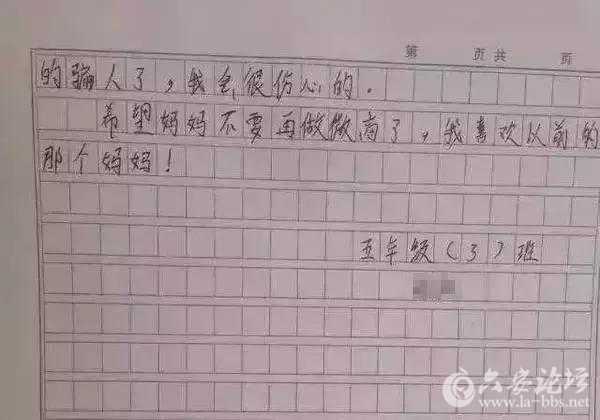 第 页共 页
的骗人了，我会很伤心的。
希望妈妈不要再做微商了，我喜欢以前的
那个妈妈！
五年级（3）班
六安论坛
www.la-bbs.net